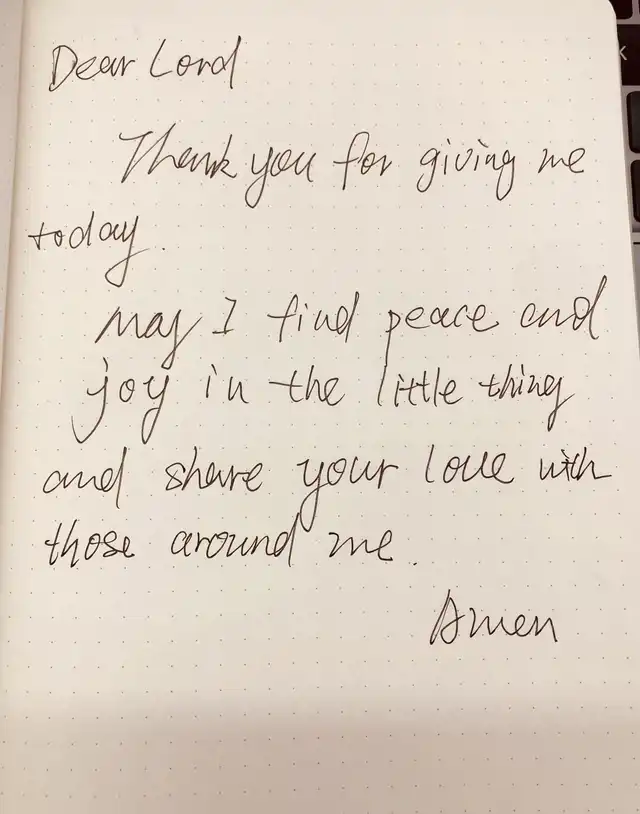 Dear Lord
Thank you for giving me
today.
May I find peace and
joy in the little thing
and share your love with
those around me.
Amen
K